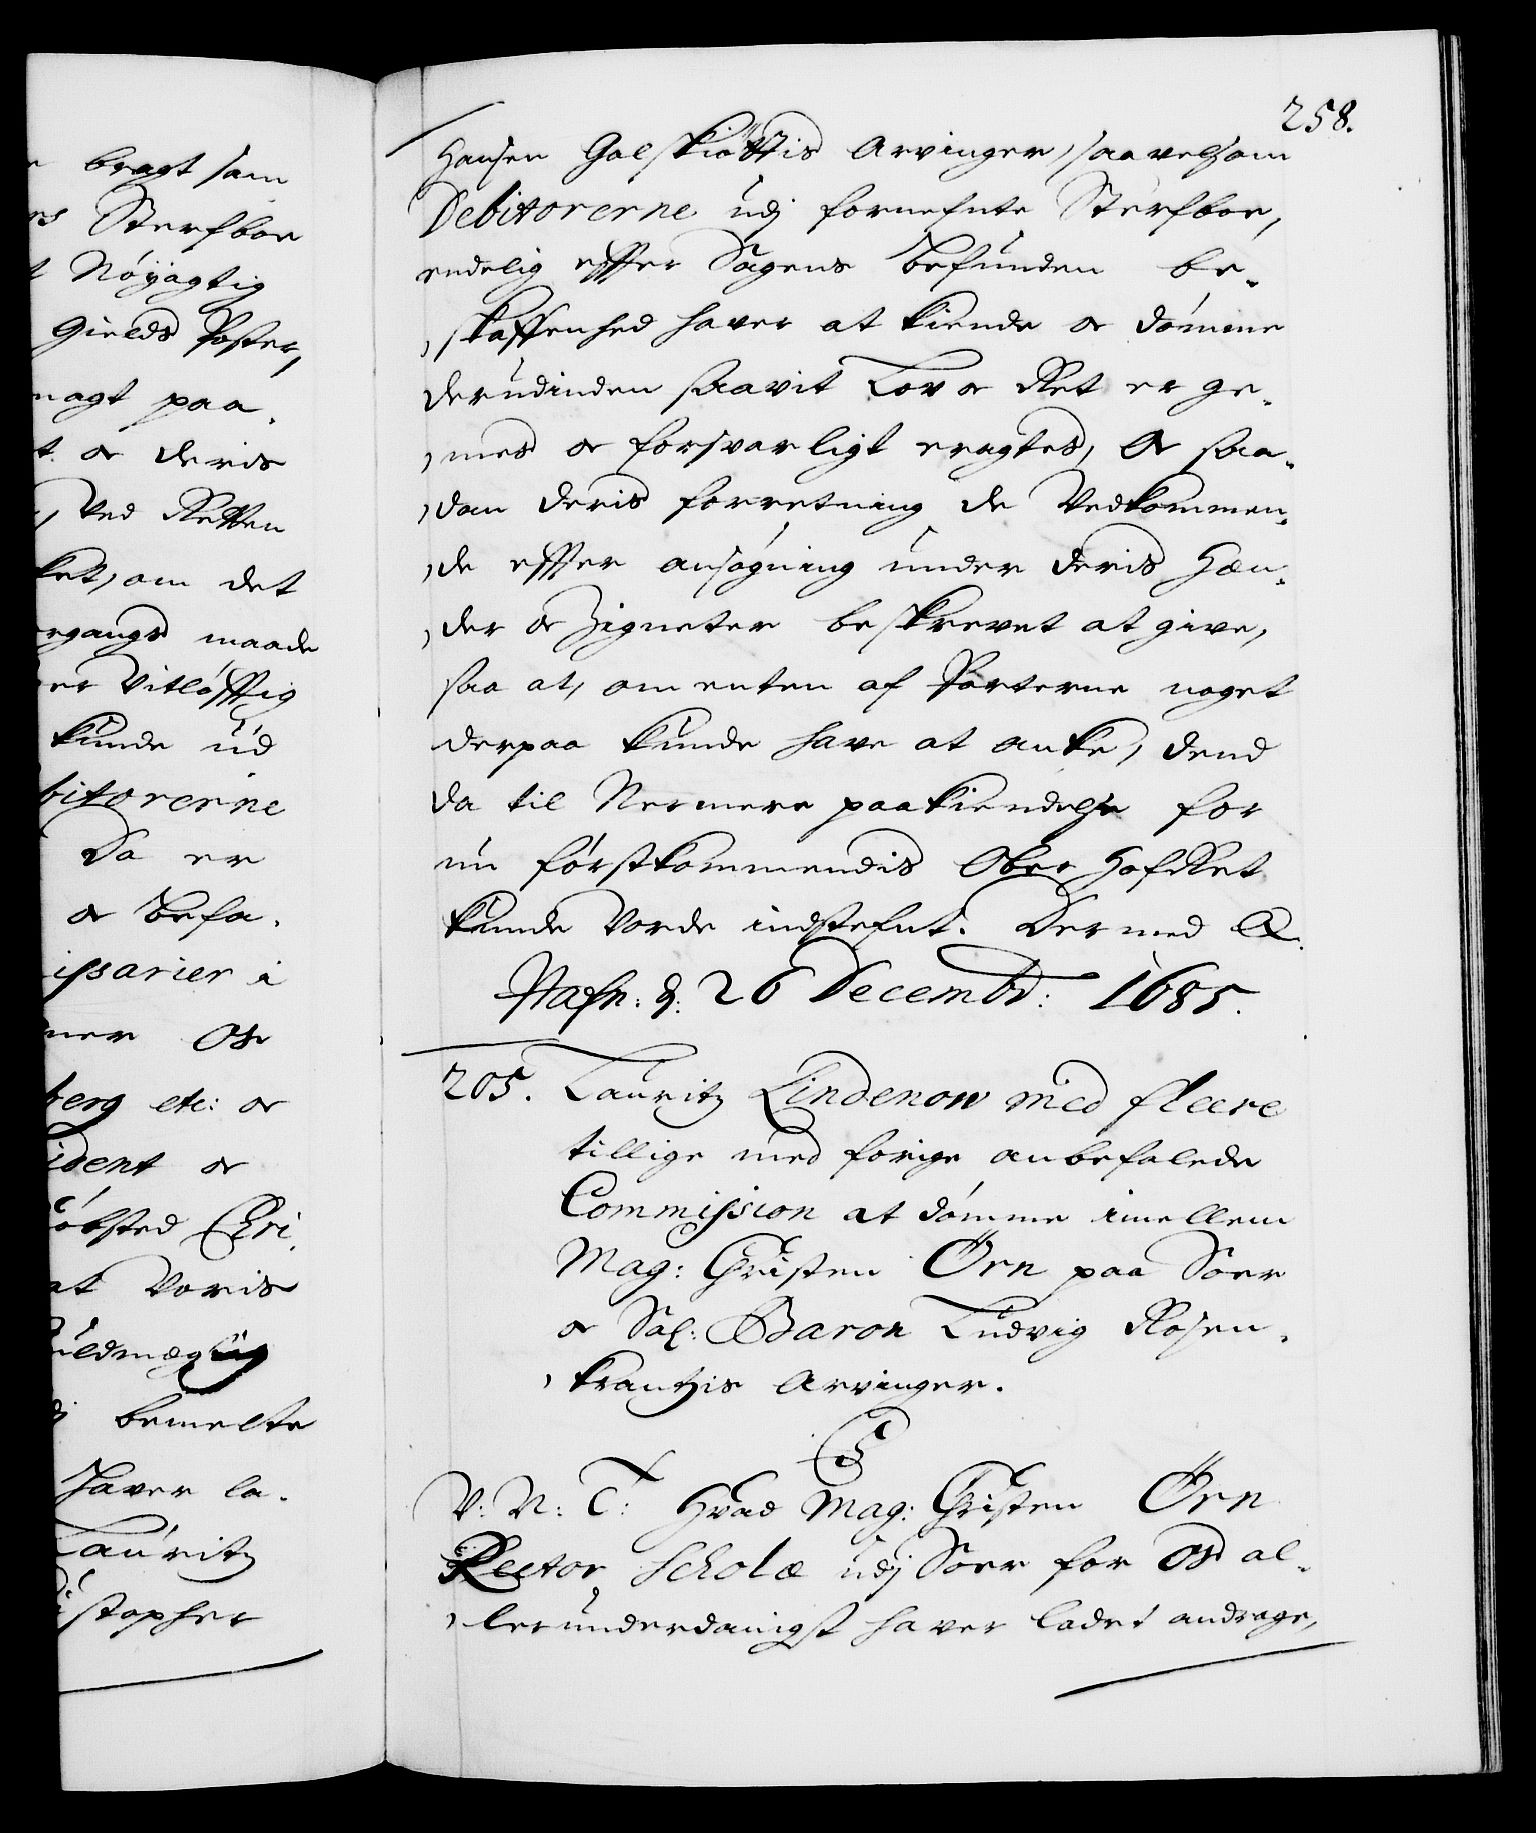 258.
Hansen Galskiøttis Arvinger, saavelsom
Debitorerne udj fornefnte Sterfboe,
endelig effter Sagens befunden be-
skaffenhed hafver at kiende oc dømme
derudinden saavit Lov oc Ret er ge-
mes oc forsvarligt eragtes, Oc saa-
dan deris forretning de Vedkommen-
de effter ansøgning under deris Hæn-
der oc Zigneter beskrevet at give,
saa at, om enten af Parterne noget
derpaa kunde have at anke, dend
da til Nermere paakiendelse for
nu førstkommendis Ober HofRet
kunde vorde indstefnt. Dermed &.
Hafn: d: 26 Decembr: 1685.
205. Lauritz Lindenow med fleere
tillige med forige anbefalede
Commission at dømme imellem
Mag: Christen Ørn paa Soer
oc Sal: Baron Ludvig Rosen-
krantzis Arvinger.
C5
V: N: T: Hvad Mag: Christen Ørn
Rector Scholæ udj Soer for Os al-
lerunderdanigst hafver ladet andrage,
bragt som
Sterfboe
Nøyagtig
Gields Poster,
magt paa
oc deris
ved Retten
ket, om det
rgangs maade
er Vitløfftig
kunde ud
bitorerne
Da er
oc befa-
issarier i
ner Os
berg etc: oc
ident oc
øbsted Chri
at Voris
uldmægtig
j bemelte
hafver la-
Lauritz
istopher